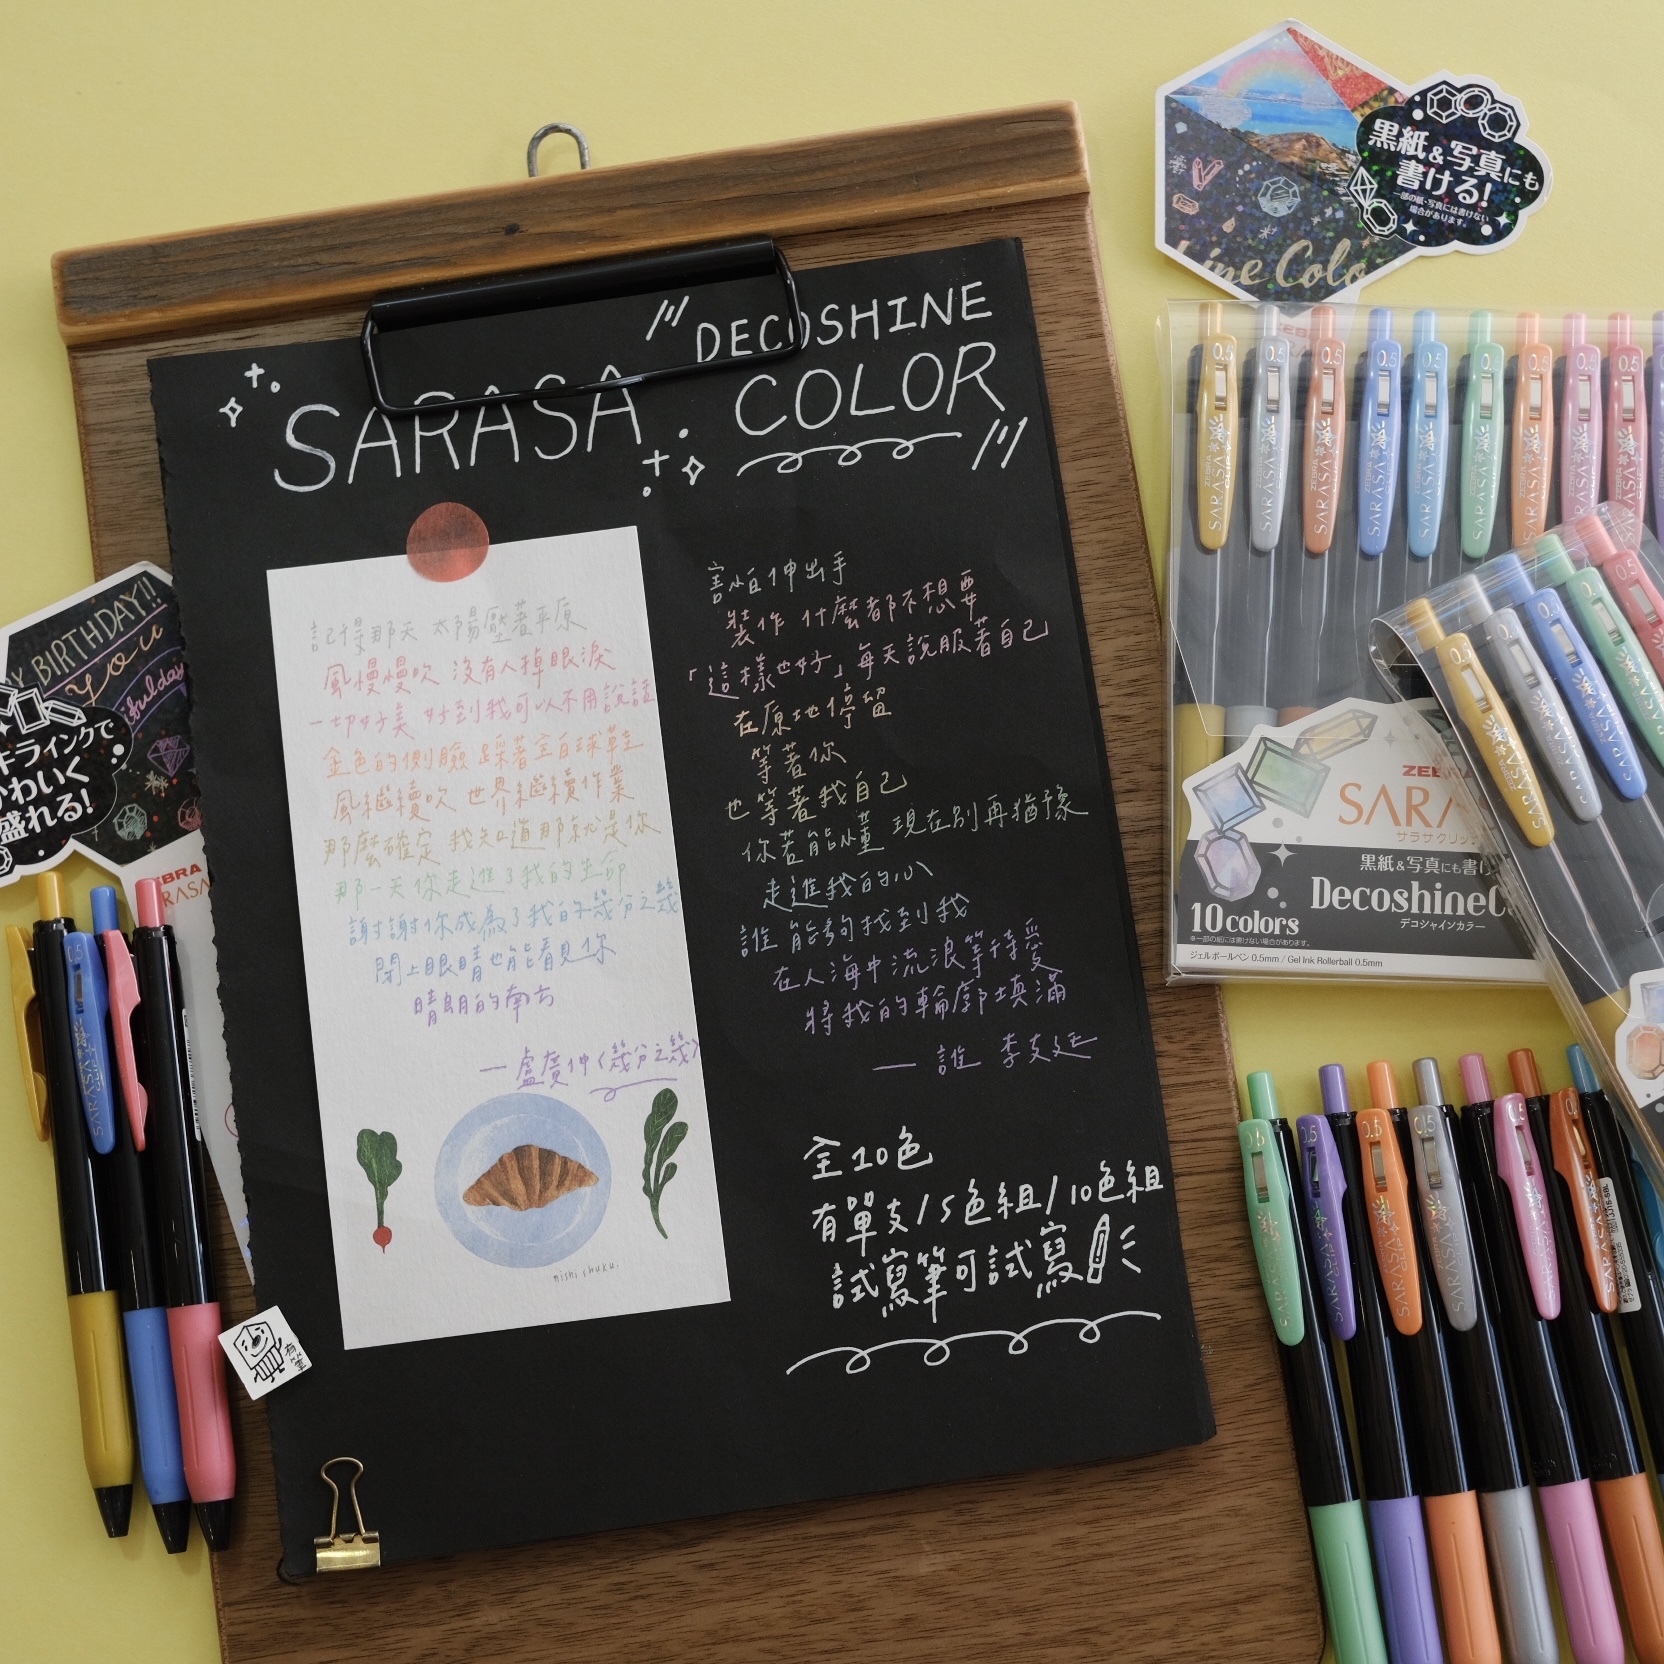 DECOSHINE
SARASA . COLOR
記得那天 太陽壓著平原
風慢慢吹 沒有人掉眼淚
一切好美 好到我可以不用說話
金色的側臉 踩著全白球鞋
風繼續吹 世界繼續作業
那麼確定 我知道那就是你
那一天你走進了我的生命
謝謝你成為了我的幾分之幾
閉上眼睛也能看見你
晴朗的南方
— 盧廣仲〈幾分之幾〉
nishi shuku.
害怕伸出手
裝作 什麼都不想要
「這樣也好」每天說服著自己
在原地停留
等著你
也等著我自己
你若能懂 現在別再猶豫
走進我的心
誰能夠找到我
在人海中流浪等待愛
將我的輪廓填滿
— 誰 李友廷
全10色
有單支/5色組/10色組
試寫筆可試寫
黒紙&写真にも
書ける!
一部の紙・写真には書けない
場合があります。
ine Colo
Y BIRTHDAY!!
You
キラインクで
かわいく
盛れる!
ZEBRA
SARASA
サラサクリップ
黒紙&写真にも書け
DecoshineC
デコシャインカラー
10 colors
※一部の紙には書けない場合があります。
ジェルボールペン 0.5mm / Gel Ink Rollerball 0.5mm
0.5
ZEBRA
SARASA
CLIP
有筆